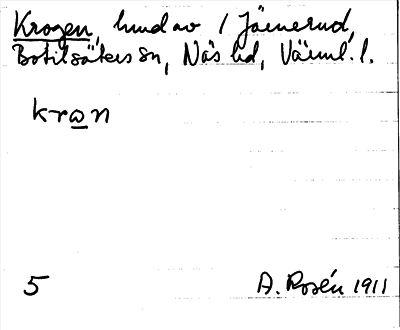 Krogen, hmd av 1 Jäunerud,
Botilsäters sn, Näs hd, Värml. l.
kran
5 A. Rosén 1911